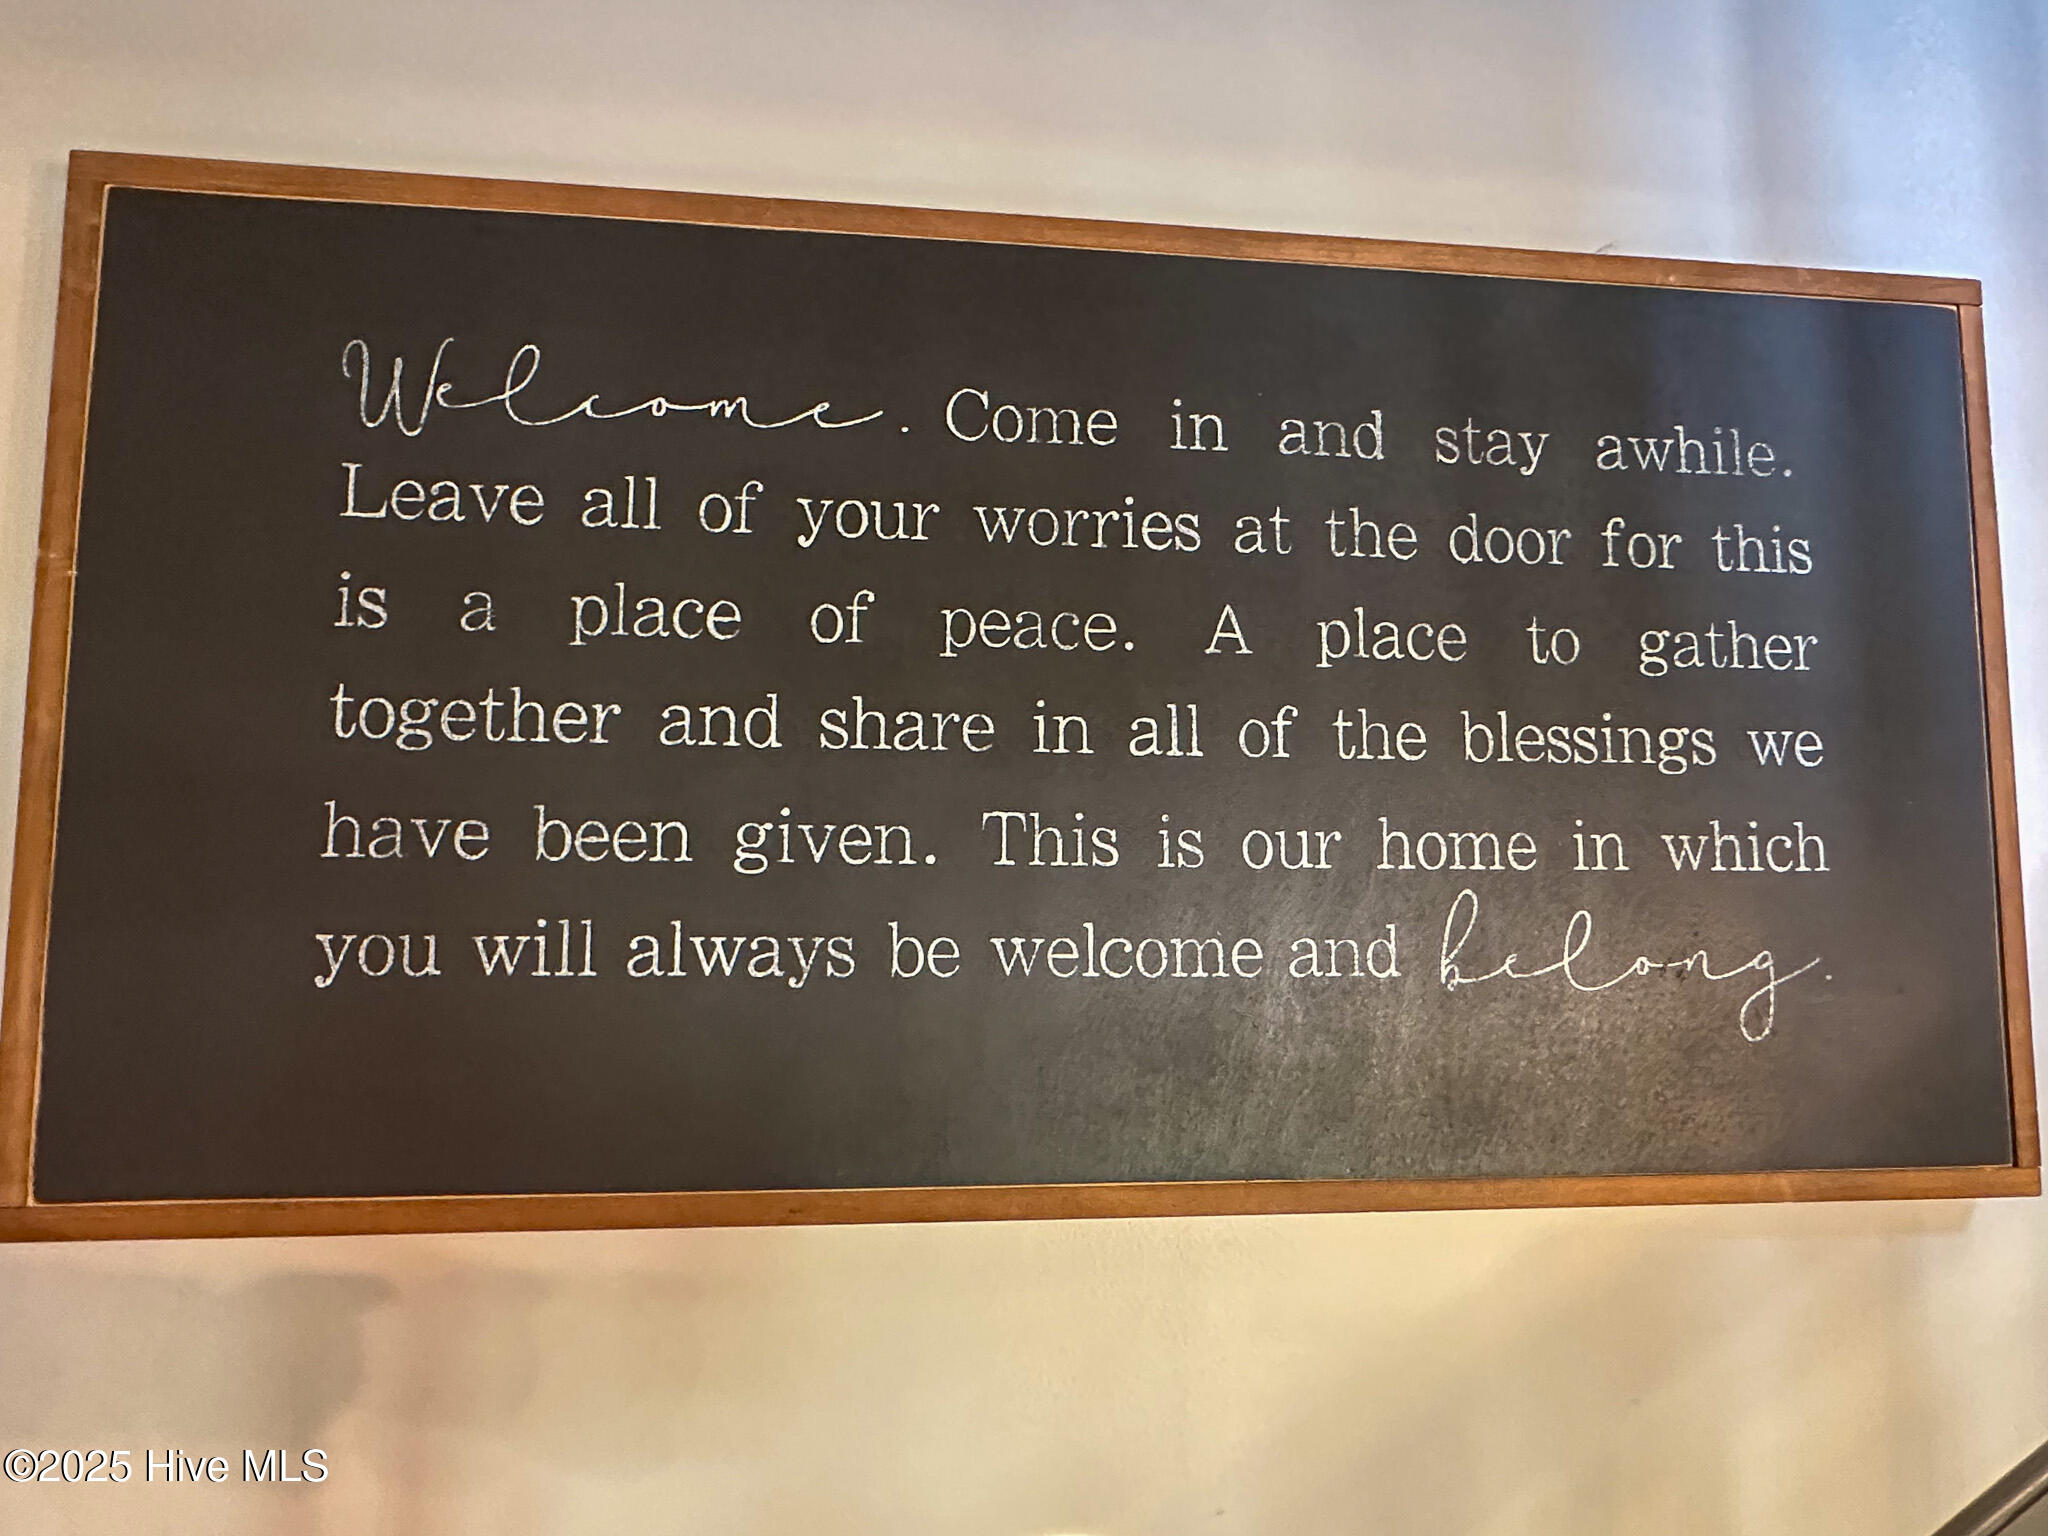 Welcome. Come in and stay awhile.
Leave all of your worries at the door for this
is a place of peace. A place to gather
together and share in all of the blessings we
have been given. This is our home in which
you will always be welcome and belong.
©2025 Hive MLS